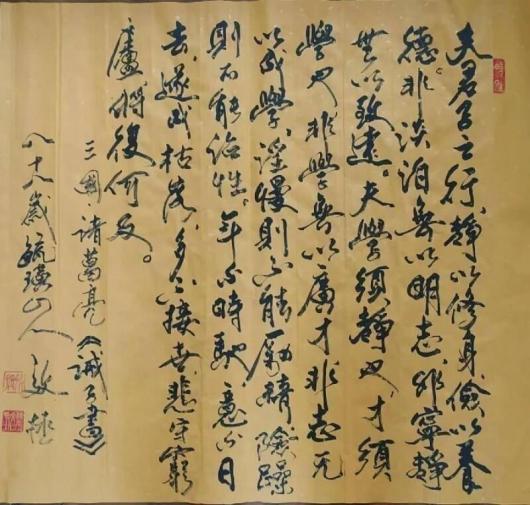 夫君子之行，靜以修身，儉以養
德。非淡泊無以明志，非寧靜
無以致遠。夫學須靜也，才須
學也，非學無以廣才，非志无
以成學，淫慢則不能勵精，險躁
則不能治性。年与時馳，意与日
去，遂成枯落，多不接世，悲守窮
廬，將復何及。
三國 諸葛亮《誡子書》
八十八歲 山人